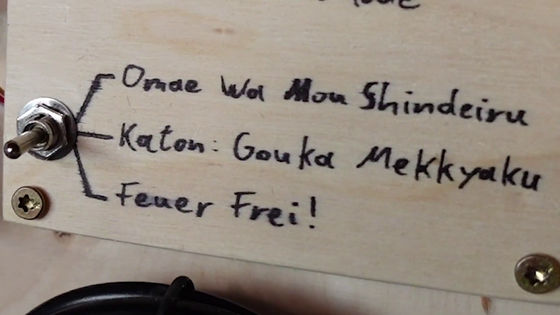 Omae Wa Mou Shindeiru
Katon: Gouka Mekkyaku
Feuer Frei!